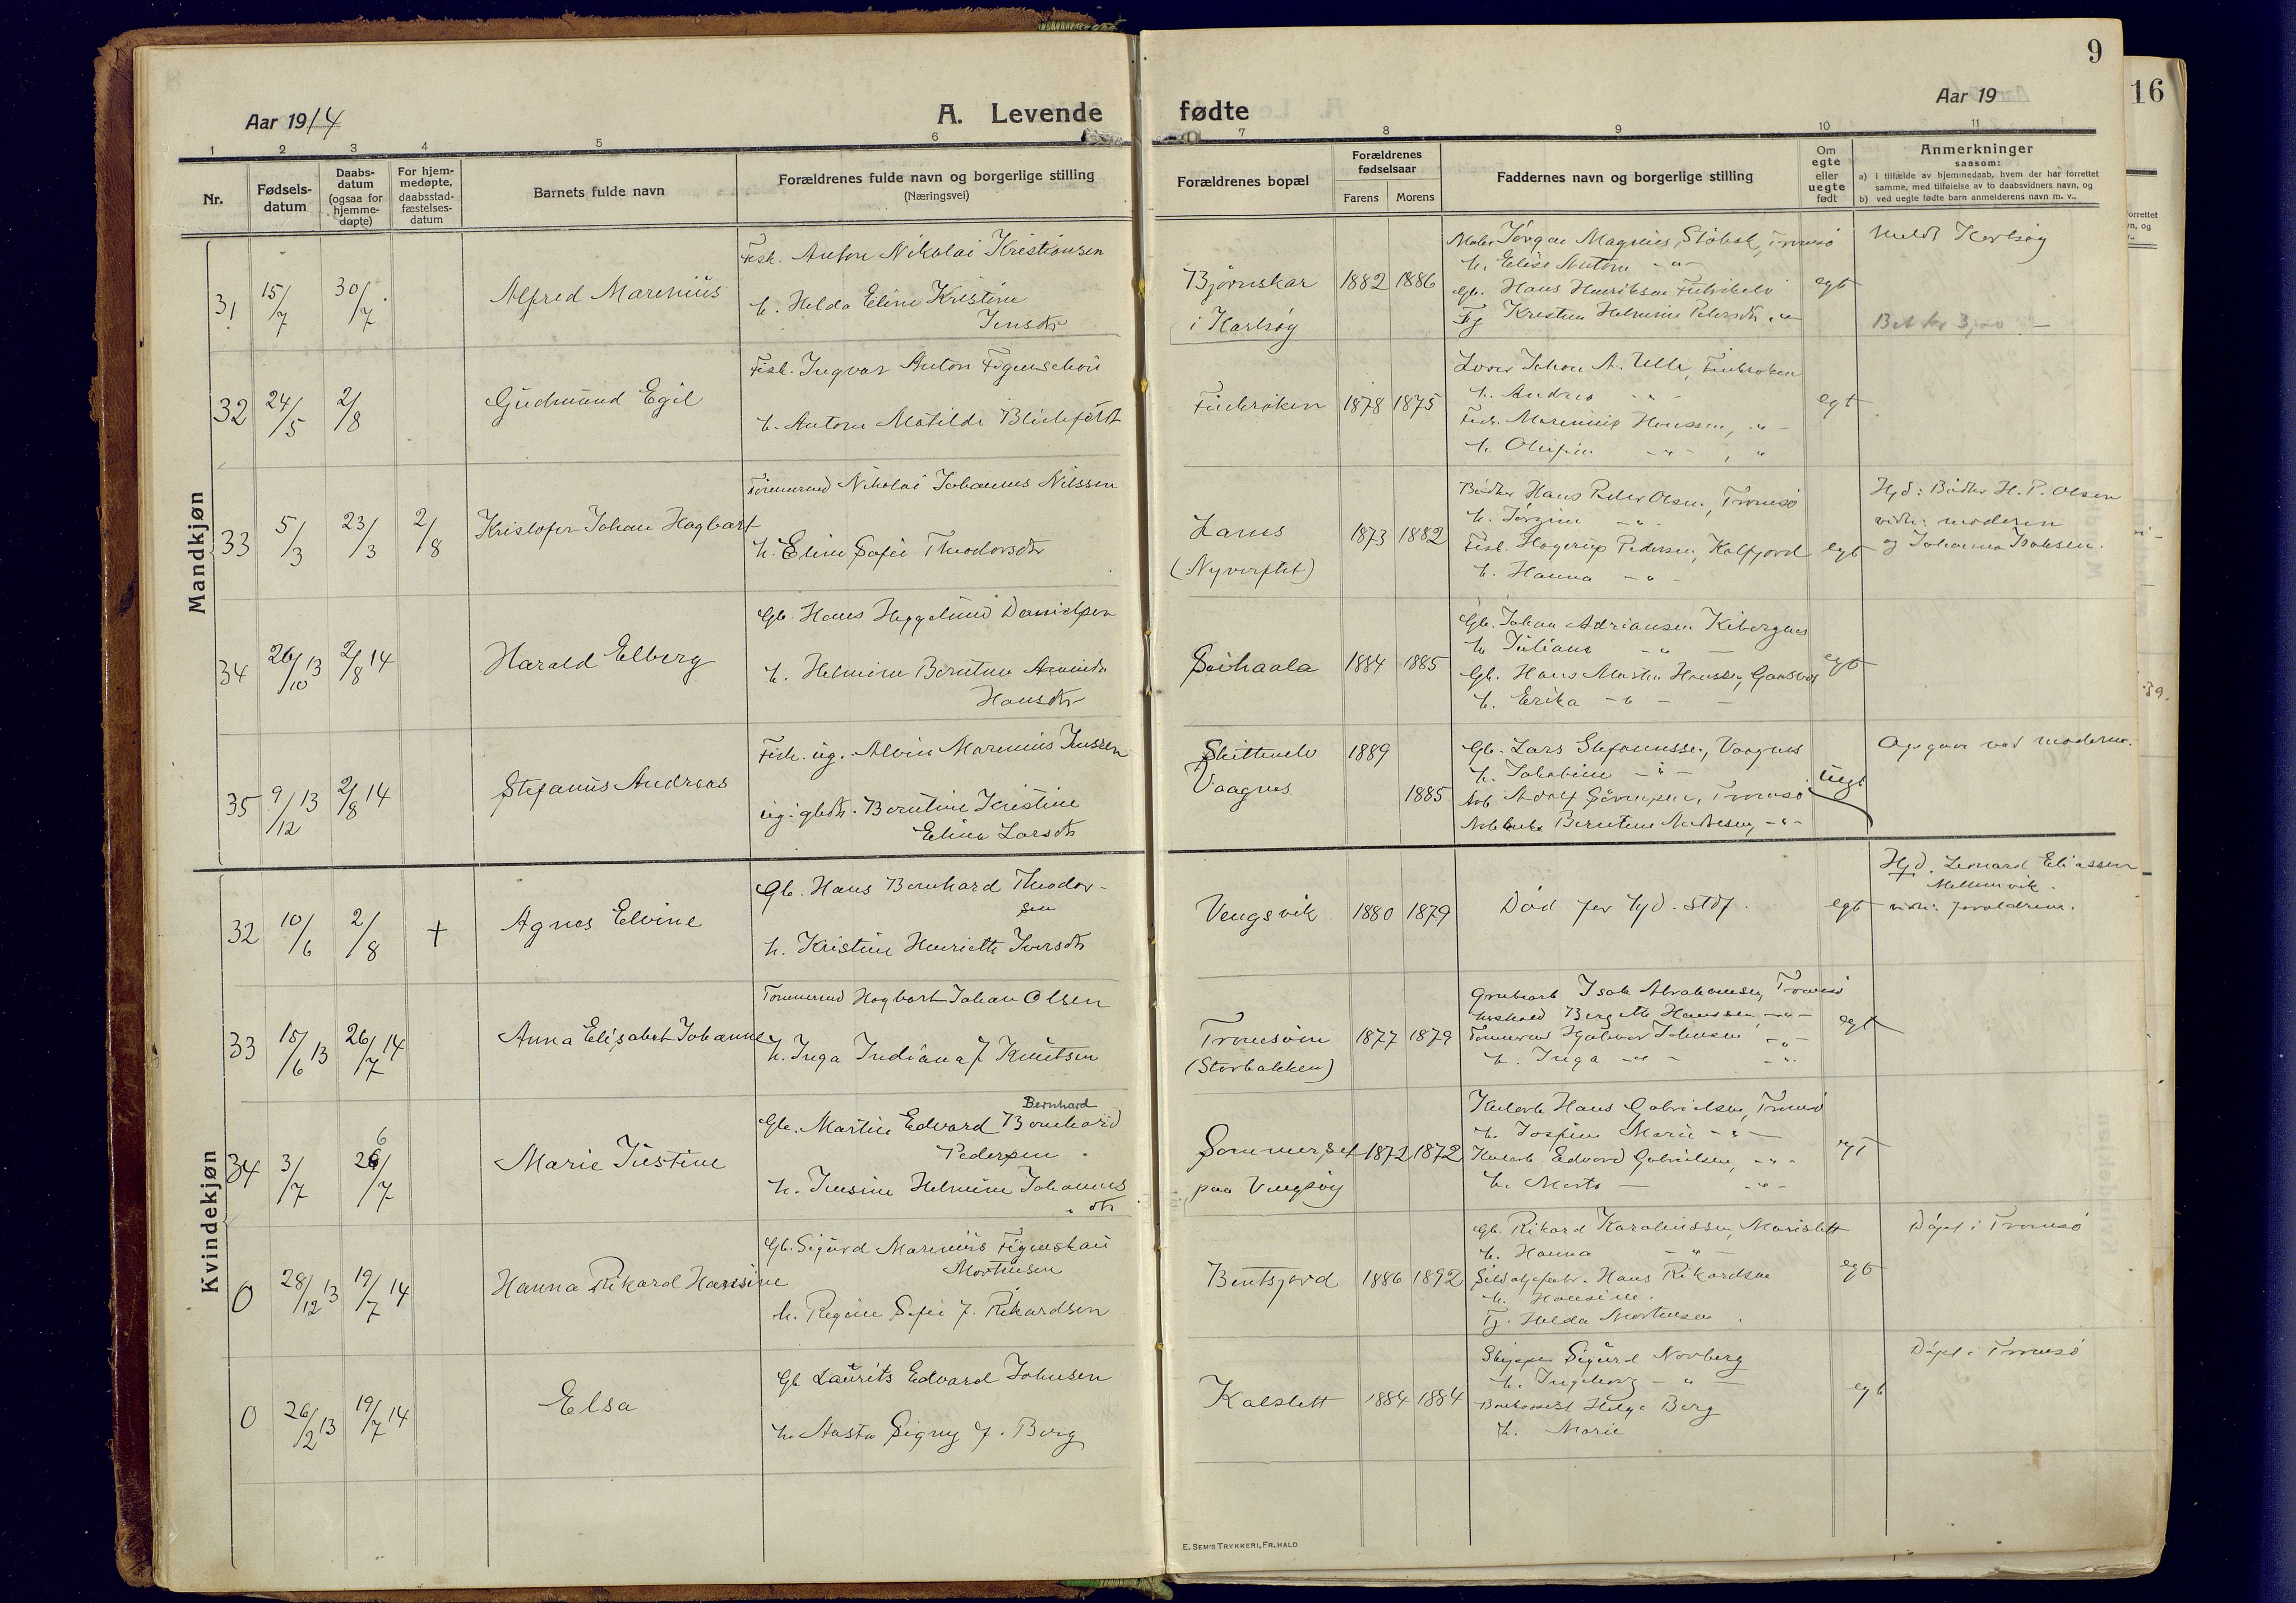 9
16
Aar 1914
A. Levende
fødte
Aar 19
1 2 3 4 5 6 7 8 9 10 11
Nr.
Fødsels-
datum
Daabs-
datum
(ogsaa for
hjemme-
døpte)
For hjem-
medøpte,
daabsstad-
fæstelses-
datum
Barnets fulde navn
Forældrenes fulde navn og borgerlige stilling
(Næringsvei)
Forældrenes bopæl
Forældrenes
fødselsaar
Farens Morens
Faddernes navn og borgerlige stilling
Om
egte
eller
uegte
født
Anmerkninger
saasom:
a) i tilfælde av hjemmedaab, hvem der har forrettet
samme, med tilføielse av to daabsvidners navn, og
b) ved uegte fødte barn anmelderens navn m. v..
Mandkjøn
31 15/7 30/7 Alfred Marenius
Fisk. Anton Nikolai Kristiansen
h. Helda Eline Kristine
Jensdtr
Bjørnskar
i Karlsøy
1882 1886
Jørgen Magnus, Tromsø
h. Elise Antone -"-
Gb. Hans Henriksen
Kristine Helmine Pedersdtr -"-
egt
Meldt Karlsøy
Bet kr 3,00
32 24/5 2/8 Gudmund Egil
Fisk. Ingvar Anton Figenschou
h. Antone Matilde Blichfeldt
Finkroken 1878 1875
Johan A. Ulle, Finkroken
h. Andrea -"-
Fisk. Marenius Hanssen, -"-
h. Olufine -"-, "
egt
33 5/3 23/3 2/8 Kristofer Johan Hagbart
Tømmermd Nikolai Johannes Nilssen
h. Eline Sofie Theodorsdtr
Lanes
(Nyverftet)
1873 1882
Bødker Hans Peder Olsen, Tromsø
h. Jørgine -"-
Fisk. Hagerup Pedersen, Kalfjord
h. Hanna -"-
egt
Hjd: Bødker H. P. Olsen
vidn: moderen
og Johanna Isaksen.
34 26/10 13 2/8 14 Harald Elberg
Gb. Hans Heggelund Danielsen
h. Helmine Berntine Amanda
Hansdtr
1884 1885
Gb. Johan Adriansen Kibergnes
h. Juliane -"-
Gb. Hans Martin Hanssen,
h. Erika -"-
egt
35 9/12 13 2/8 14 Stefanus Andreas
Fisk. ug. Alvin Marenius Jenssen
ug. gbdtr. Berntine Kristine
Eline Larsdtr
Skittenelv 1889
Vaagnes 1885
Gb. Lars Stefanussen, Vaagnes
h. Jakobine -"-
Arb Adolf Sørensen, Tromsø
Berntine Andresen, -"-
uegt
Opgave ved moderen.
Kvindekjøn
32 10/6 2/8 + Agnes Elvine
Gb. Hans Bernhard Theodor-
sen
h. Kristine Henriette Iversdtr
Vengsvik 1880 1879
Død før kjd. stdf.
egt
Hjd. Leonard Eliassen
Mellemvik.
vidn: forældrene.
33 15/6 13 26/7 14 Anna Elisabet Johanne
Tømmermd Hagbart Johan Olsen
h. Inga Indiana f Knutsen
Tromsøen
(Storbakken)
1877 1879
Isak Abrahamsen, Tromsø
Bergitte Hanssen -"-
Tømmermd Hjalmar Johnsen -"-
h. Inga -"- -"-
egt
34 3/7 26/7 6 Marie Justine
Gb. Martin Edvard Bernhard
Bernhard
Pedersen
h. Jensine Helmine Johannes
dtr
Sommerset
paa Vengsøy
1872 1872
Hans Gabrielsen, Tromsø
h. Josefine Marie -"-
Edvard Gabrielsen, -"-
h. Marta — -"-
egt
0 28/12 13 19/7 14 Hanna Rikard Hansine
Gb. Sigurd Marenius Figenskau
Mortensen
h. Regine Sofie f. Rikardsen
Bentsjord 1886 1892
Gb. Rikard Karoliussen, Marislett
h. Hanna -"-
Hans Rikardsen
h. Hansine.
Tj. Helda Mortensen.
egt
Døpt i Tromsø
0 26/2 13 19/7 14 Elsa
Gb Laurits Edvard Johnsen
h. Aasta Signy f. Berg
Kalslett 1884 1884
Skipper Sigurd Norberg
h. Ingeborg -"-
Helge Berg
h. Marie
egt
Døpt i Tromsø
E. SEM'S TRYKKERI, FR.HALD